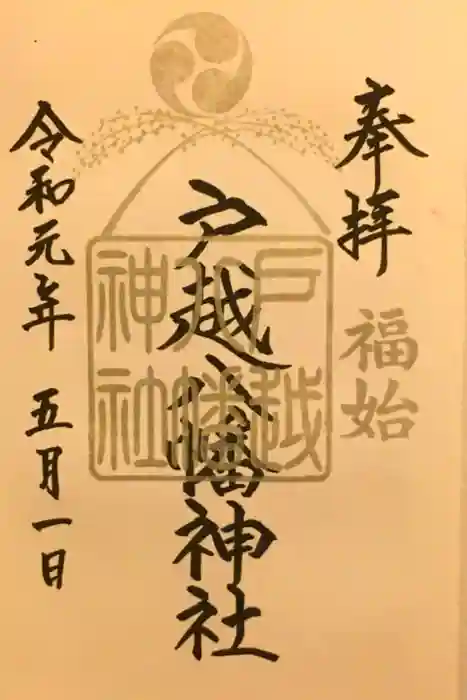 奉拝
福始
戸越八幡神社
戸越
八幡
神社
令和元年 五月一日